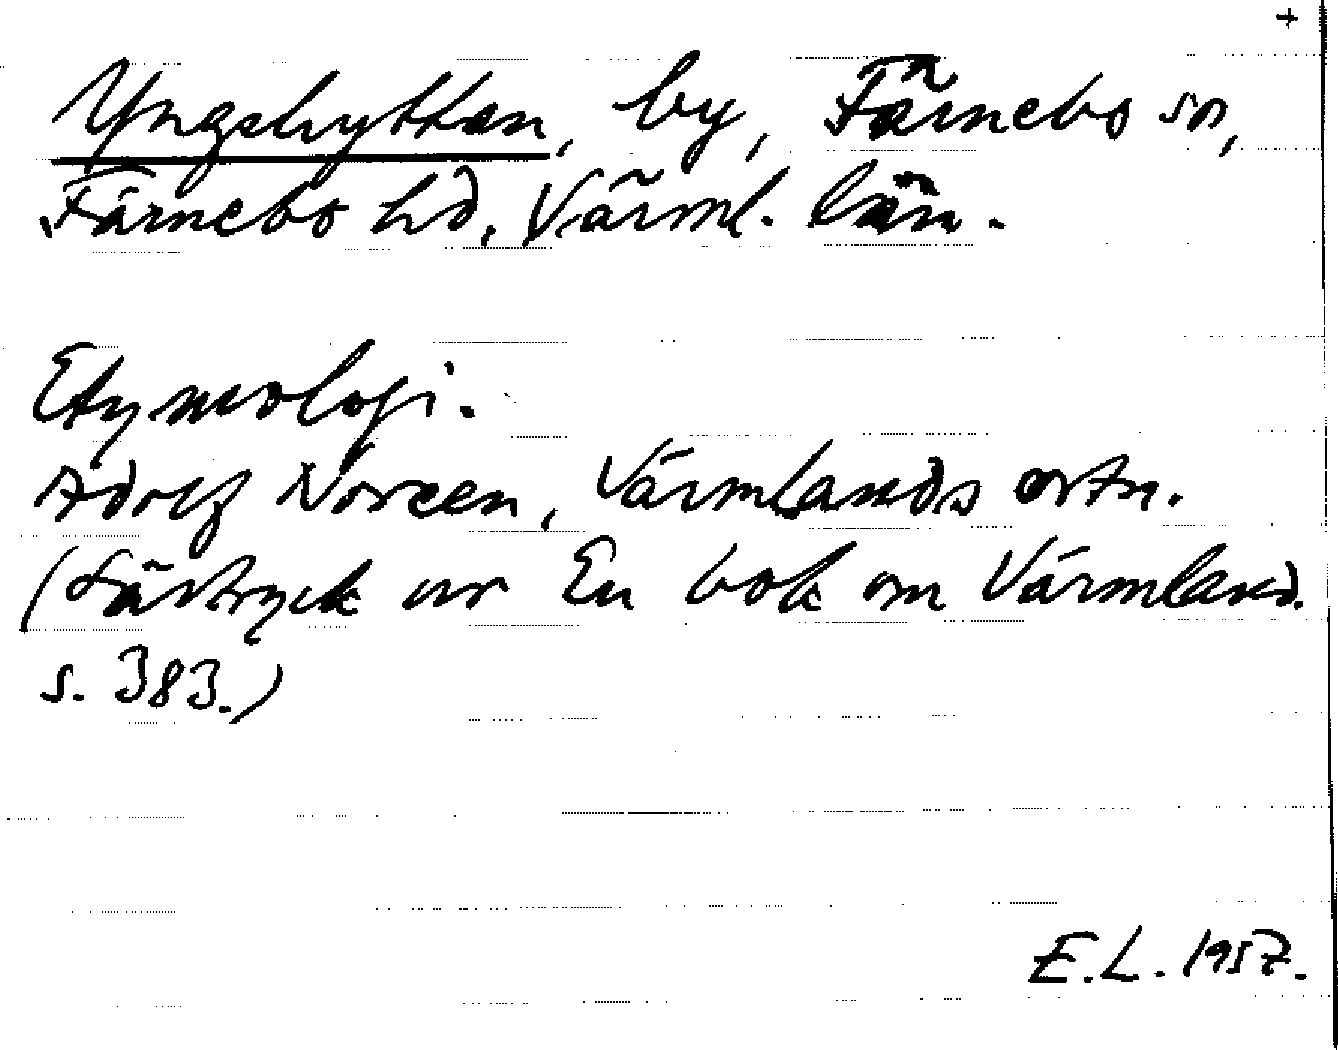 +
Yngshyttan, by, Färnebo sn,
Färnebo hd, Värml. län.
Etymologi.
Adolf Noreen, Värmlands ortn.
(Särtryck ur En bok om Värmland.
s. 383.)
E.L. 1957.